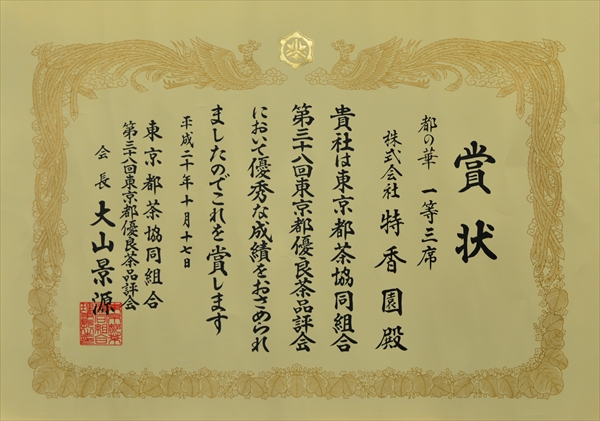 賞状
都の華 一等三席
株式会社 特香園殿
貴社は東京都茶協同組合
第三十八回東京都優良茶品評会
において優秀な成績をおさめられ
ましたのでこれを賞します
平成二十年十月十七日
東京都茶協同組合
第三十八回東京都優良茶品評会
会長 大山景源